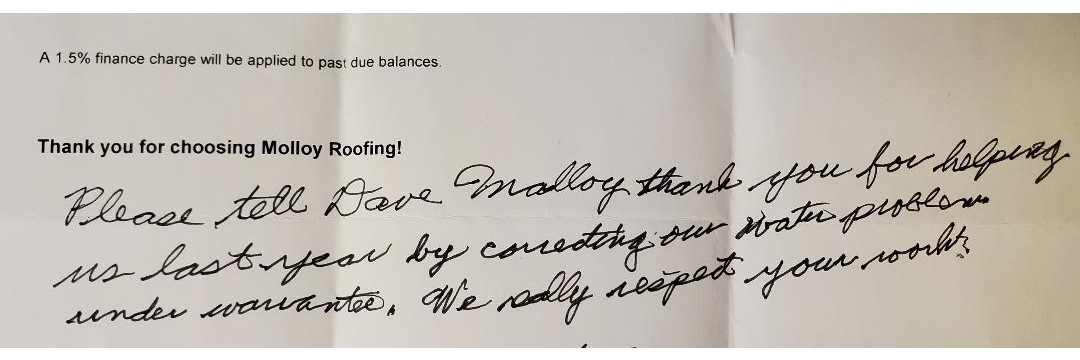 A 1.5% finance charge will be applied to past due balances.
Thank you for choosing Molloy Roofing!
Please tell Dave Malloy thank you for helping
us last year by correcting our water problem
under warrantee. We really respect your work!